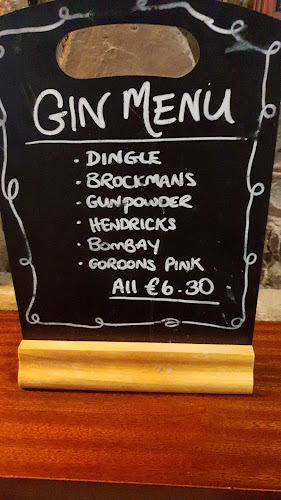 GIN MENU
· DINGLE
· BROCKMANS
· GUNPOWDER
· HENDRICKS
· BOMBAY
· GORDONS PINK
All €6.30